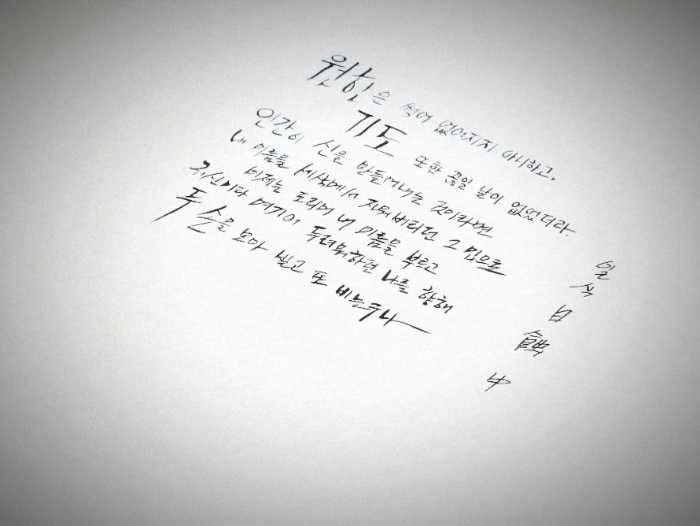 원한은 썩어 없어지지 아니하고,
기도 또한 끊일 날이 없었더라.
인간이 신을 만들어내는 것이라면
내 이름을 세상에서 지워버리던 그 입으로
이제는 도리어 내 이름을 부르고
귀신이다 여기어 두려워하던 나를 향해
두 손을 모아 빌고 또 비는구나
일식 넘
中